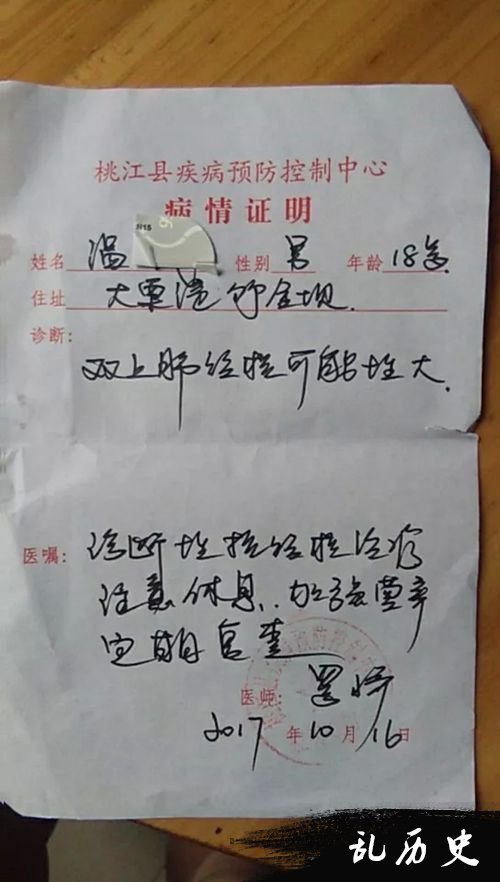 桃江县疾病预防控制中心
病情证明
姓名 温 性别 男 年龄 18岁
住址 大栗港 金坝.
诊断：
双上肺结核可能性大.
医嘱： 诊断性抗结核治疗
注意休息. 加强营养
定期复查
医师：
2017 年 10 月 16 日
乱历史